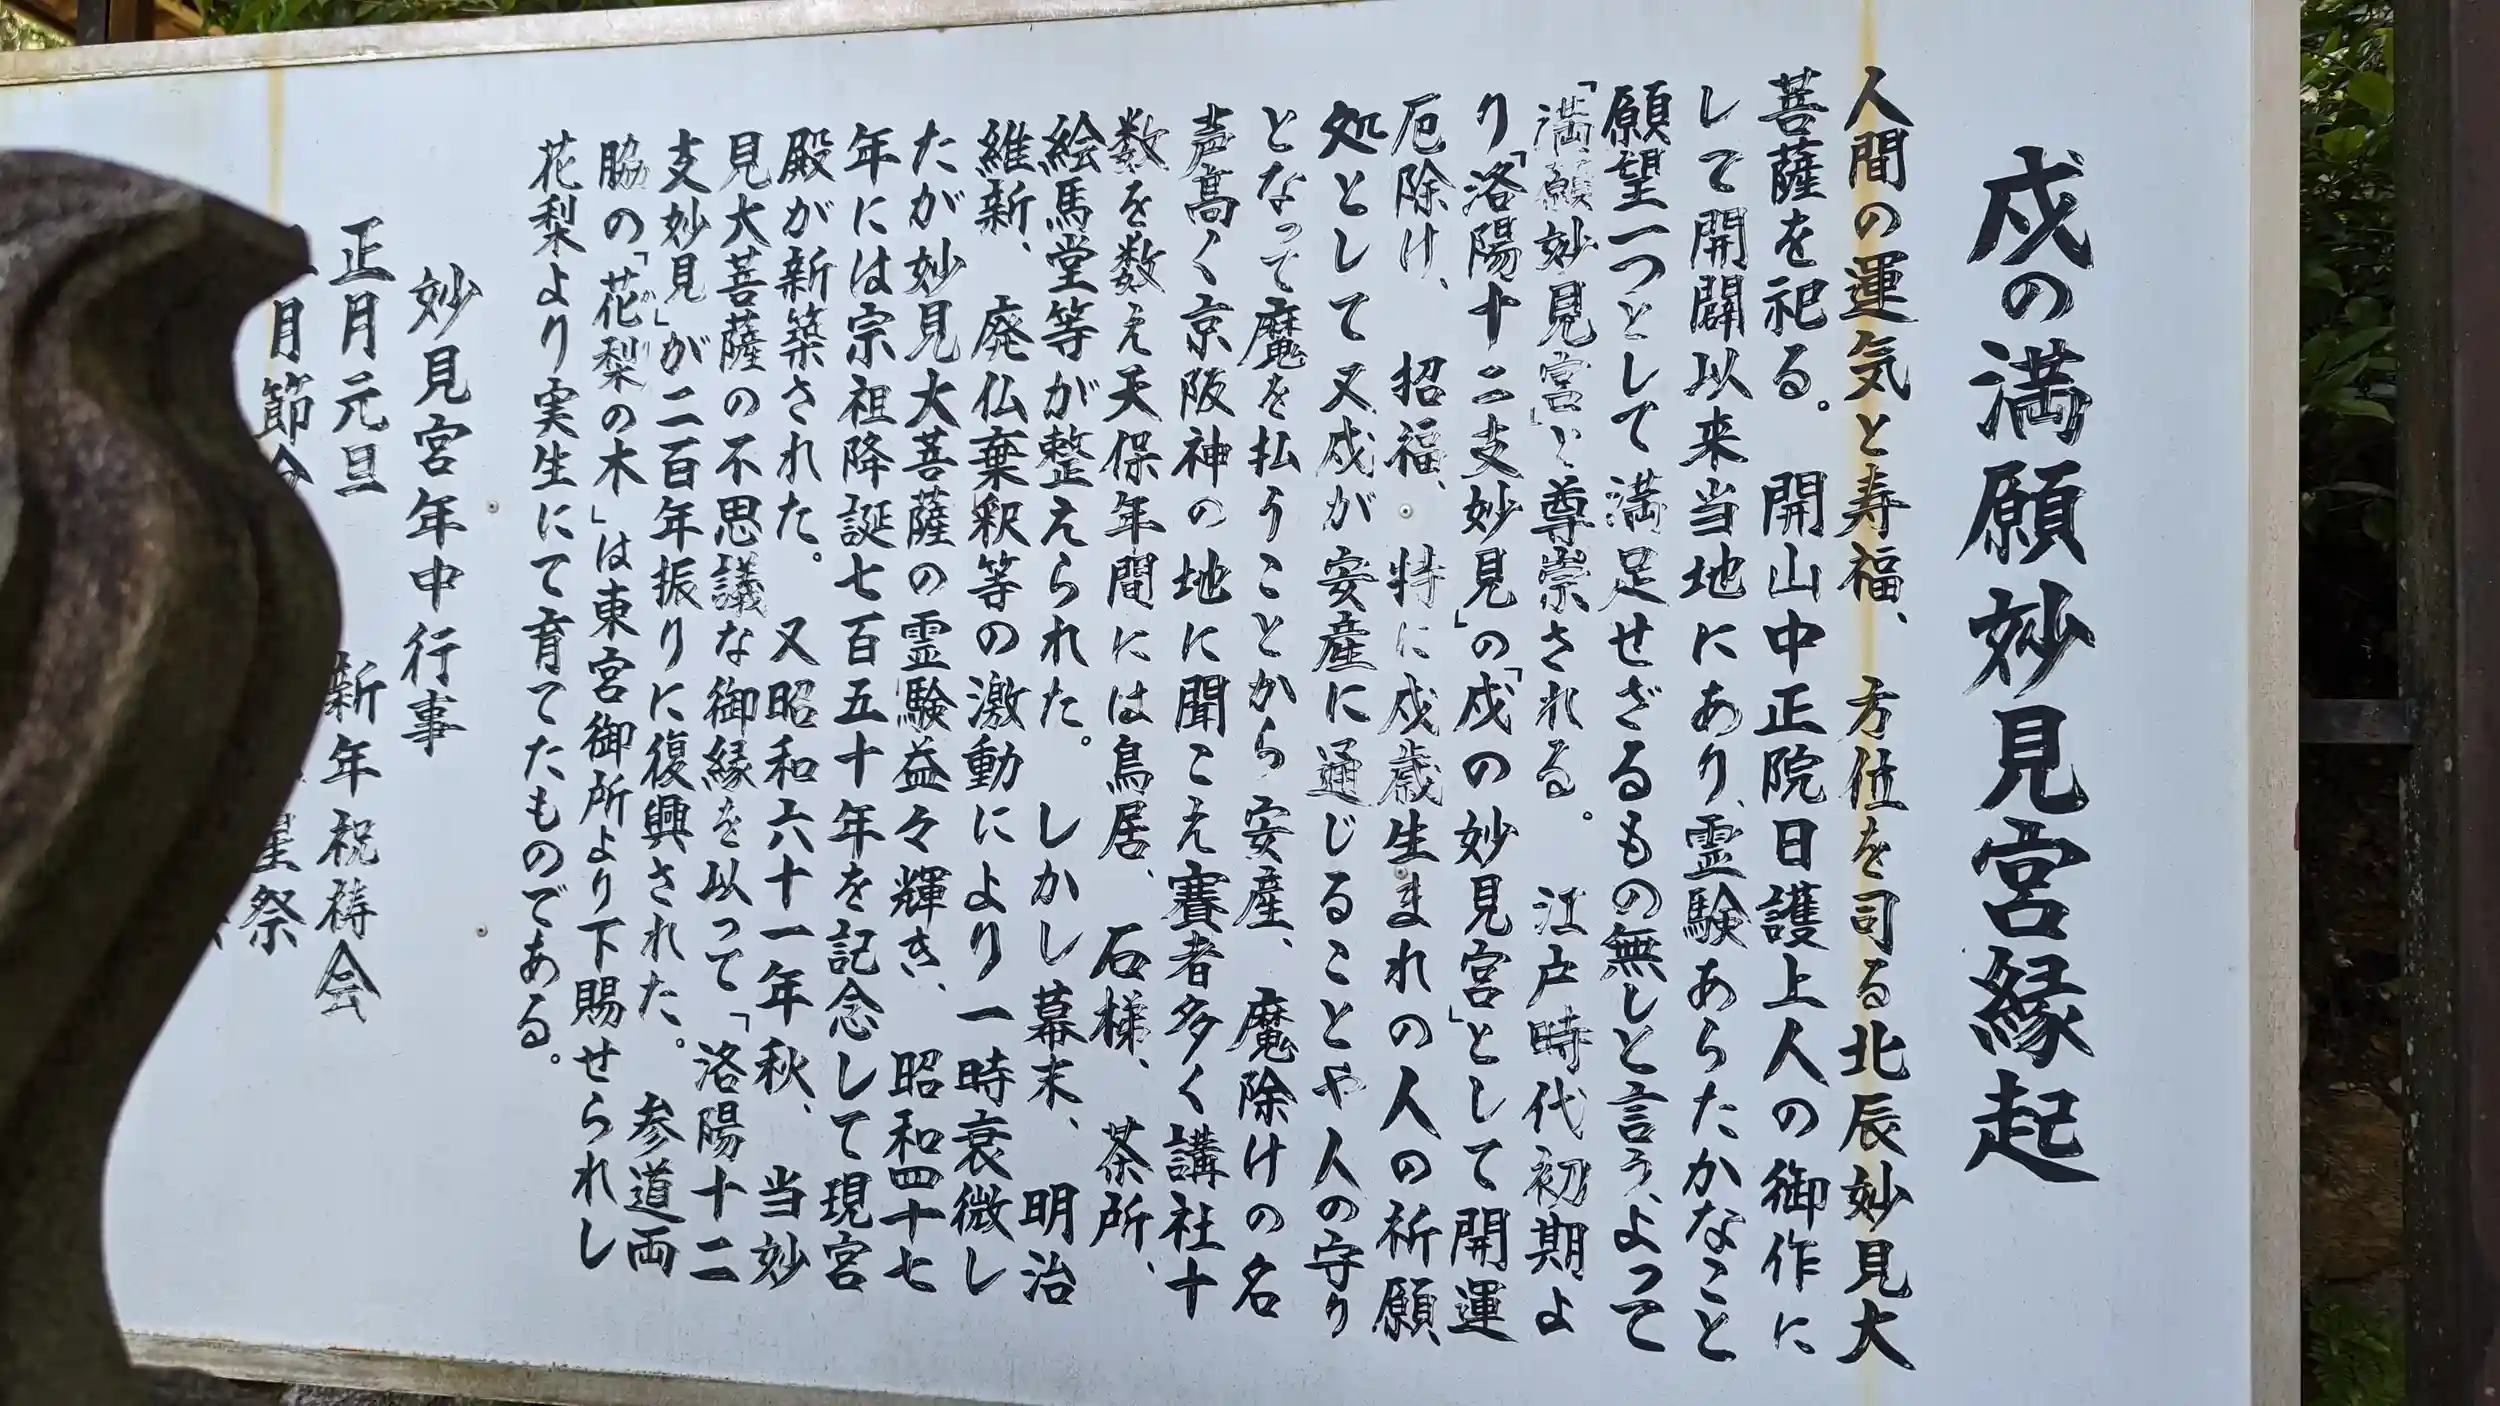 戌の満願妙見宮縁起
人間の運気と寿福、方位を司る北辰妙見大
菩薩を祀る。開山中正院日護上人の御作に
して開闢以来当地にあり、霊験あらたかなこと
願望一つとして満足せざるもの無しと言う、よって
「満願妙見宮」と尊崇される。江戸時代初期よ
り「洛陽十二支妙見」の「戌の妙見宮」として開運
厄除け、招福、特に戌歳生まれの人の祈願
処として又戌が安産に通じることや人の守り
となって魔を払うことから安産、魔除けの名
声高く京阪神の地に聞こえ賽者多く講社十
数を数え天保年間には鳥居、石様、茶所、
絵馬堂等が整えられた。しかし幕末、明治
維新、廃仏棄釈等の激動により一時衰微し
たが妙見大菩薩の霊験益々輝き、昭和四十七
年には宗祖降誕七百五十年を記念して現宮
殿が新築された。又昭和六十一年秋、当妙
見大菩薩の不思議な御縁を以って「洛陽十二
支妙見」が二百年振りに復興された。参道両
脇の「花梨の木」は東宮御所より下賜せられし
花梨より実生にて育てたものである。
妙見宮年中行事
正月元旦 新年祝祷会
月節分 星祭